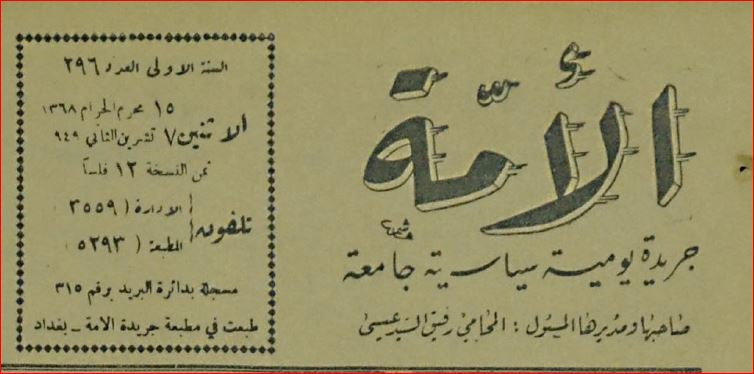 الأمّة
جريدة يومية سياسية جامعة
صاحبها ومديرها المسئول : المحامي رفيق السيد عيسى
السنة الاولى العدد ٢٩٦
١٥ محرم الحرام ١٣٦٨
الاثنين ٧ تشرين الثاني ٩٤٩
ثمن النسخة ١٢ فلساً
تلفون الادارة ( ٣٥٥٩
المطبعة ( ٥٢٩٣
مسجلة بدائرة البريد برقم ٣١٥
طبعت في مطبعة جريدة الامة - بغداد